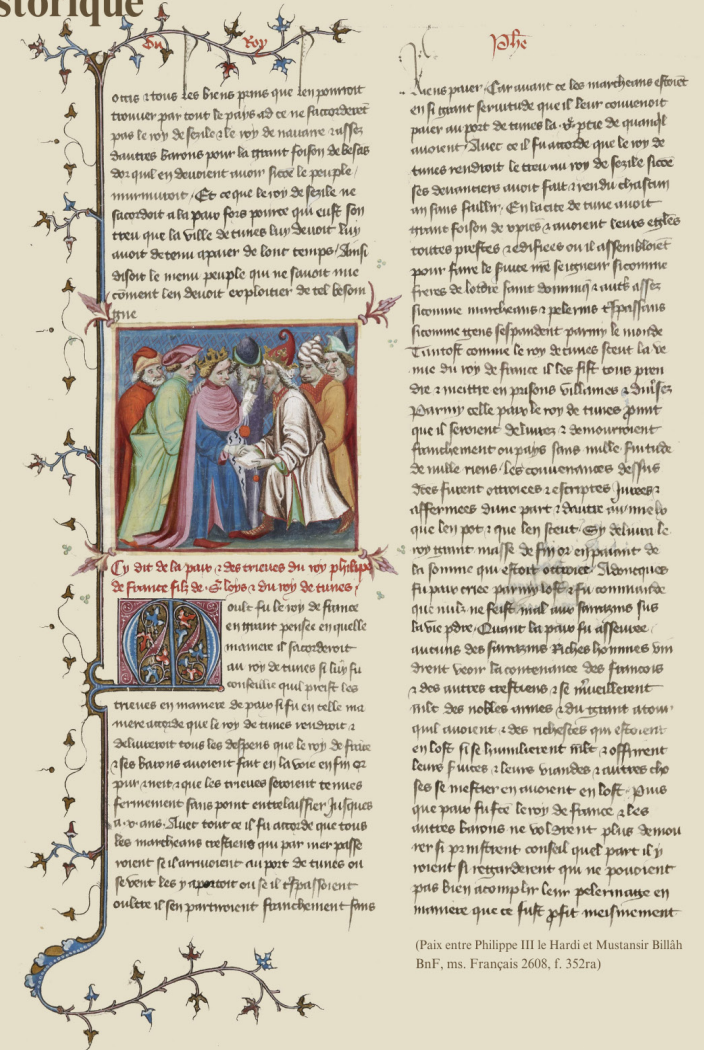 storique
Du Roy
occis et tous les biens prins que len pourroit
trouver par tout le pays ad ce ne saccorderent
pas le roy de sezile et le roy de navarre et assez
dautres barons pour la grant foison de besas
dor quil en devoient avoir sicõe le peuple
murmuroit. Et ce que le roy de sezile ne
sacordoit a la paix fors pource quil eust son
treu que la ville de tunes luy devoit luy
avoit detenu a paier de lonc temps. Ainsi
disoit le menu peuple qui ne savoit mie
cõment len devoit exploitier de tel besoin
gne
Cy dit de la paix et des trieues du roy philippe
de france filz de S. loys et du roy de tunes
Moult fu le roy de france
en grant pensee en quelle
maniere il sacorderoit
au roy de tunes si luy fu
conseillie quil preist les
trieues en maniere de paix si fu en telle ma
niere acorde que le roy de tunes rendroit et
delivreroit tous les despens que le roy de frãce
et ses barons avoient fait en la voie en fin or
pur et neit et que les trieues seroient tenues
fermement sans point entrelaissier jusques
a .x. ans. Avec tout ce il fu acorde que tous
les marcheans crestiens qui par mer passe
roient se il arrivoient au port de tunes ou
se vent les y aportoit ou se il trespassoient
oultre il sen partiroient franchement sans
Phẽ
riens paier. Car avant ce les marcheans estoiẽt
en si grant servitude que il leur convenoit
paier au port de tunes la .xe. ptie de quanql
avoient. Avec ce il fu acorde que le roy de
tunes rendroit le treu au roy de sezile sicõe
ses devanciers avoit fait et rendu chascun
an sans faillir. En la cite de tune avoit
grant foison de xpiẽs et avoient leurs eglẽs
toutes prestes et edifiees ou il assembloiẽt
pour faire le service nrẽ seigneur sicomme
freres de lordre saint dominiq et autrs assez
sicomme marcheans et pelerins trespassans
sicomme gens sespandent parmy le monde
Tantost comme le roy de tunes sceut la ve
nue du roy de france il les fist tous pren
dre et mettre en prisons villaines et divses
Parmy celle paix le roy de tunes pmist
que il seroient delivrez et demourroient
franchement ou pays sans nulle svitude
de nulle riens. les convenances dessus
dtes furent ottroiees et escriptes jurees et
affermees dune part et dautre au mielx
que len pot et que len sceut. Sy delivra le
roy grant masse de fin or en paiant de
la somme qui estoit ottroiee. Adoncques
fu paix criee parmy lost et fu commande
que nulz ne feist mal aux sarrazins sus
la vie pdre. Quant la paix fu asseuree
aucuns des sarrazins riches hommes vin
drent veoir la contenance des francois
et des autres crestiens et se mveillerent
mlt des nobles armes et du grant atour
quil avoient et des richesces qui estoient
en lost si se humilierent mlt et offrirent
leurs svices et leurs viandes et autres cho
ses se mestier en avoient en lost. Puis
que paix fust ce le roy de france et les
autres barons ne voldrent plus demou
rer si prinstrent conseil quel part il y
roient si regarderent qui ne pouoient
pas bien acomplir leur pelerinage en
maniere que ce fust pfit meismement
(Paix entre Philippe III le Hardi et Mustansir Billâh
BnF, ms. Français 2608, f. 352ra)